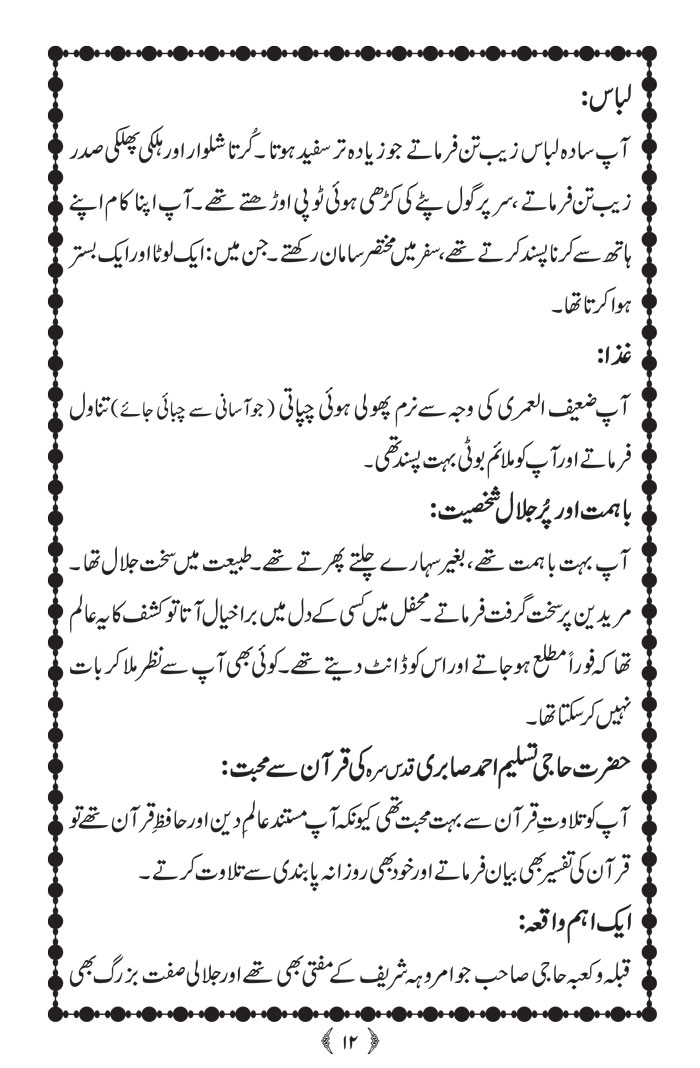 لباس:
آپ سادہ لباس زیب تن فرماتے جو زیادہ تر سفید ہوتا ۔ کُرتا شلوار اور ہلکی پھلکی صدر
زیب تن فرماتے ،سر پر گول پٹے کی کڑھی ہوئی ٹوپی اوڑھتے تھے ۔ آپ اپنا کام اپنے
ہاتھ سے کرنا پسند کرتے تھے، سفر میں مختصر سامان رکھتے ۔ جن میں : ایک لوٹا اور ایک بستر
ہوا کرتا تھا ۔
غذا:
آپ ضعیف العمری کی وجہ سے نرم پھولی ہوئی چپاتی (جو آسانی سے چبائی جائے) تناول
فرماتے اور آپ کو ملائم بوٹی بہت پسند تھی ۔
باہمت اور پُرجلال شخصیت:
آپ بہت باہمت تھے ، بغیر سہارے چلتے پھرتے تھے ۔ طبیعت میں سخت جلال تھا ۔
مریدین پر سخت گرفت فرماتے ۔ محفل میں کسی کے دل میں برا خیال آتا تو کشف کا یہ عالم
تھا کہ فوراً مطلع ہوجاتے اور اس کو ڈانٹ دیتے تھے ۔ کوئی بھی آپ سے نظر ملا کر بات
نہیں کرسکتا تھا ۔
حضرت حاجی تسلیم احمد صابری قدس سرہ کی قرآن سے محبت:
آپ کو تلاوتِ قرآن سے بہت محبت تھی کیونکہ آپ مستند عالمِ دین اور حافظِ قرآن تھے تو
قرآن کی تفسیر بھی بیان فرماتے اور خود بھی روزانہ پابندی سے تلاوت کرتے ۔
ایک اہم واقعہ:
قبلہ و کعبہ حاجی صاحب جو امروہہ شریف کے مفتی بھی تھے اور جلالی صفت بزرگ بھی
﴿ ۱۲ ﴾